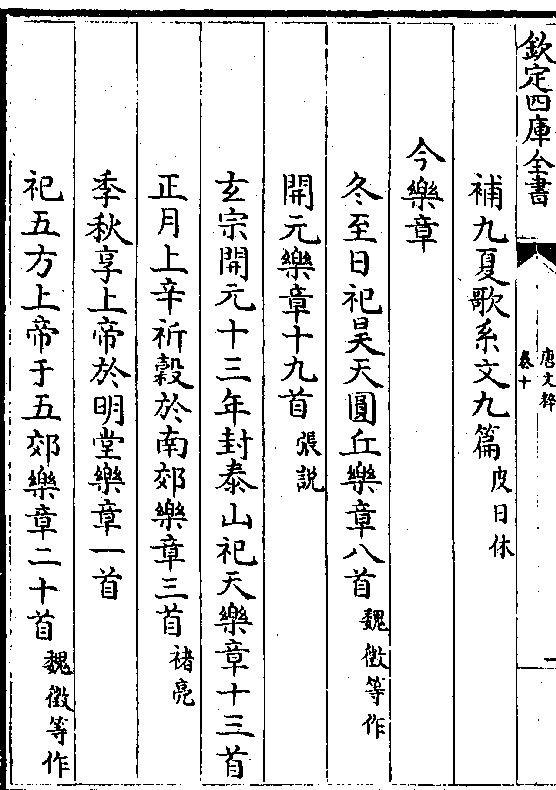 欽定四庫全書
唐文粹
卷十
補九夏歌系文九篇皮日休
今樂章
冬至日祀昊天圜丘樂章八首魏徵等作
開元樂章十九首張説
玄宗開元十三年封泰山祀天樂章十三首
正月上辛祈穀於南郊樂章三首褚亮
季秋享上帝於明堂樂章一首
祀五方上帝于五郊樂章二十首魏徵等作